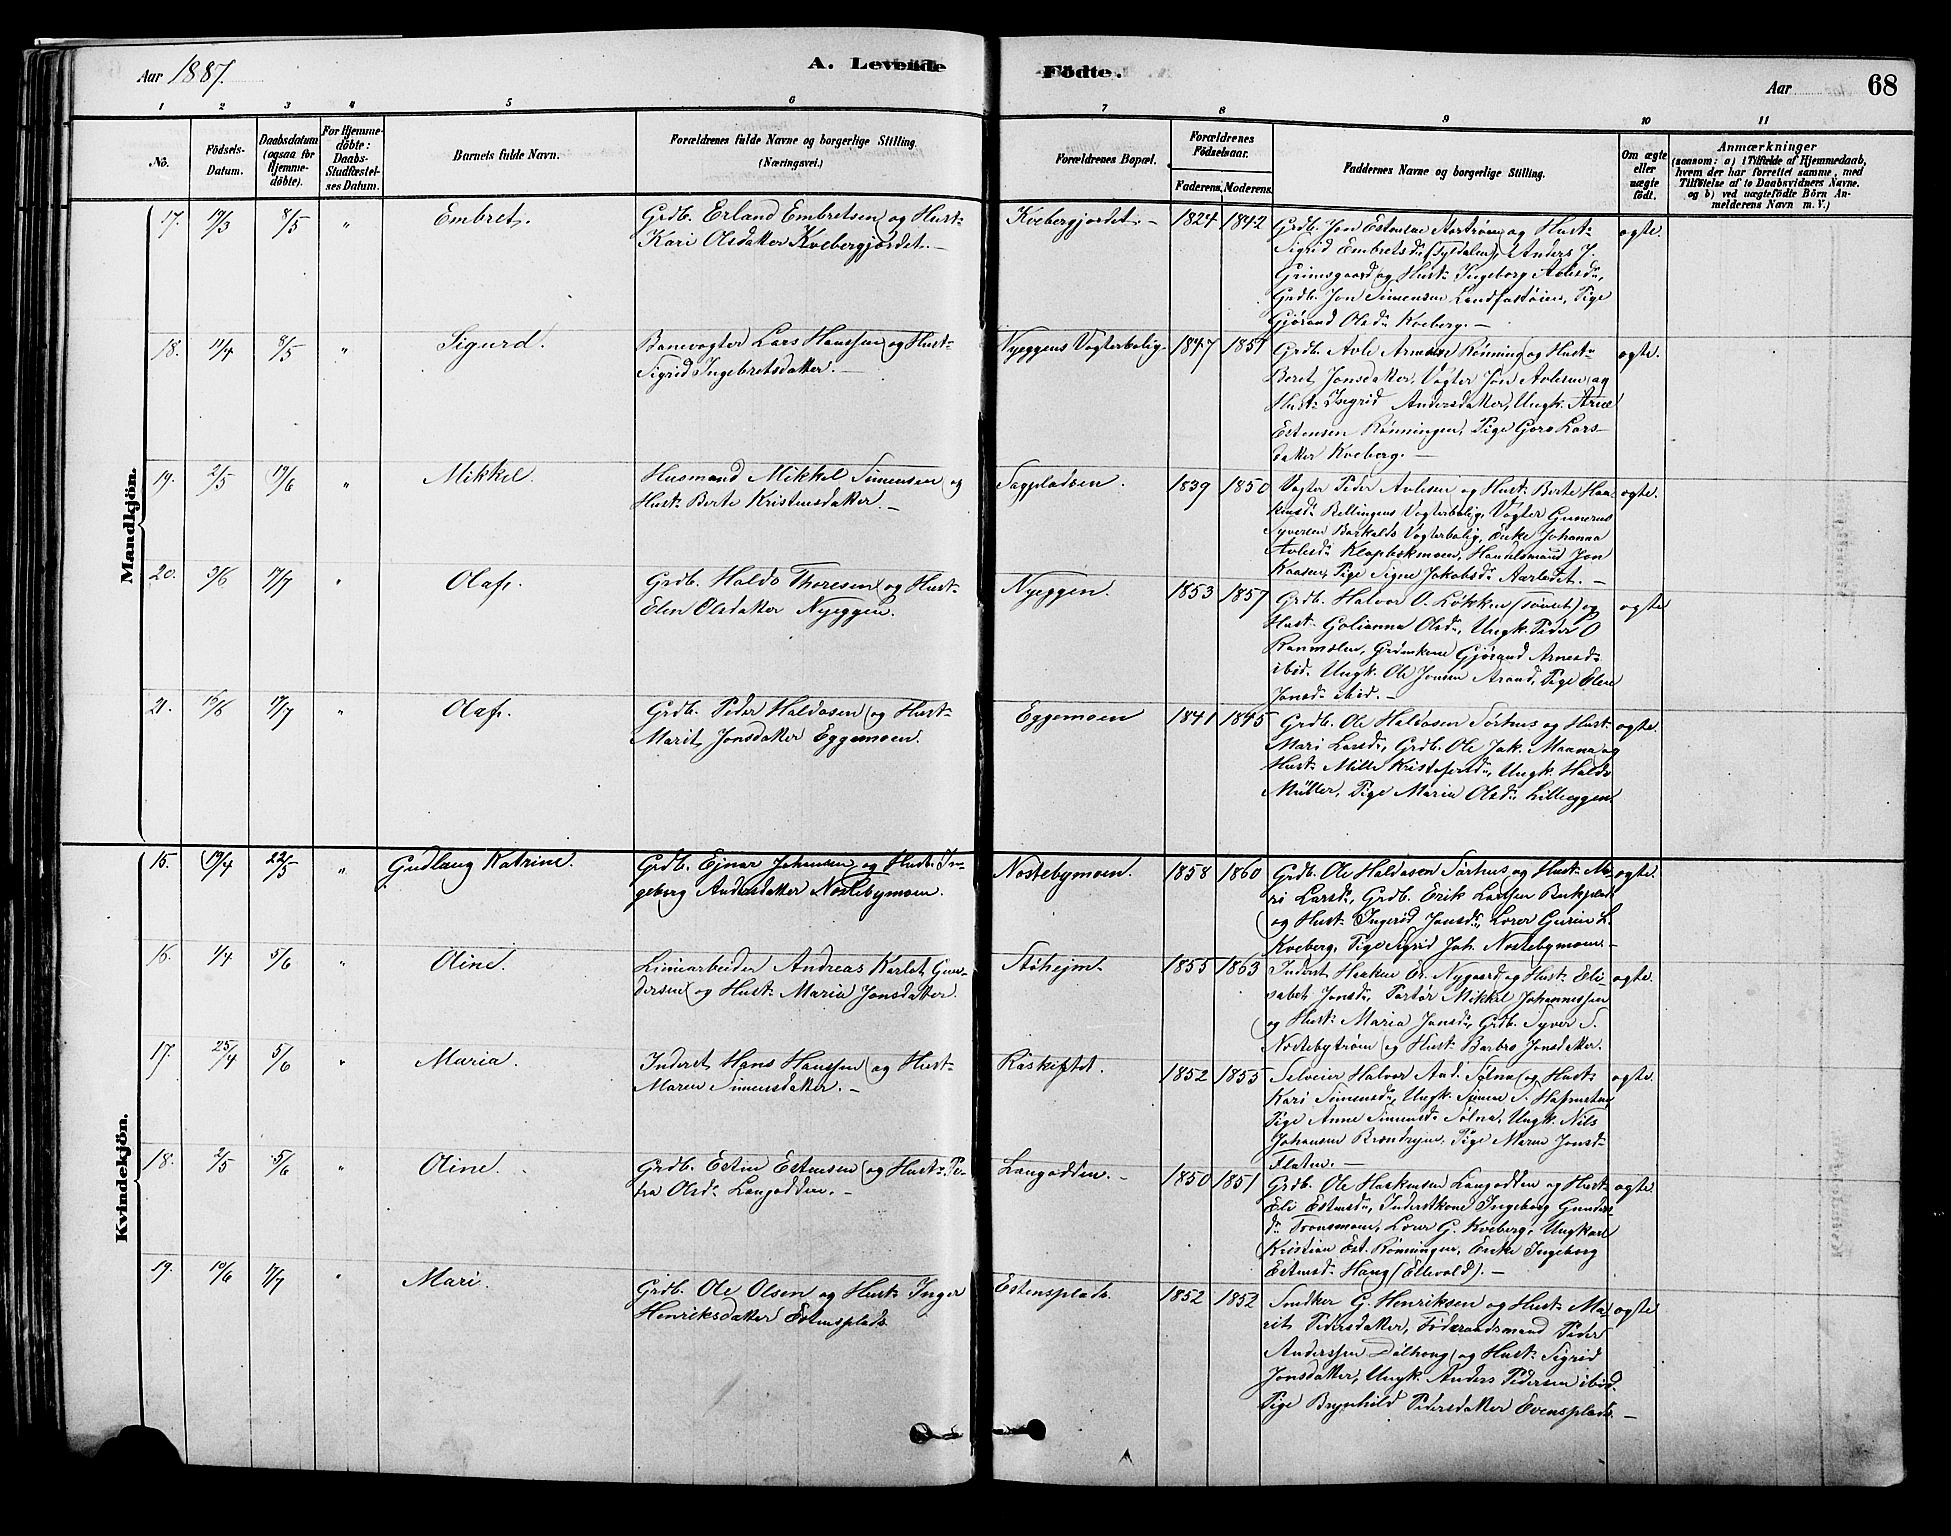 Aar 1887.
A. Levende
Fødte.
Aar
68
1 2 3 4 5 6 7 8 9 10 11
No.
Fødsels-
Datum.
Daabsdatum
(ogsaa for
Hjemme-
døbte).
For Hjemme-
døbte:
Daabs-
Stadfæstel-
ses Datum.
Barnets fulde Navn.
Forældrenes fulde Navne og borgerlige Stilling.
(Næringsvei.)
Forældrenes Bopæl.
Forældrenes
Fødselsaar.
Faderens. Moderens.
Faddernes Navne og borgerlige Stilling.
Om ægte
eller
uægte
født.
Anmærkninger
(saasom: a) i Tilfælde af Hjemmedaab,
hvem der har forrettet samme, med
Tilføielse af to Daabsvidners Navne.
og b) ved uægtefødte Börn An-
melderens Navn m. V.)
Mandkjön.
17. 19/3 8/5 " Embret.
Grdb. Erland Embretsen og Hust:
Kari Olsdatter Kvebergjordet. —
Kvebergjordet. — 1824 1842
Grdb. Jon Estensen og Hust:
Sigrid Embretsd: (Tyldalen), Anders J.
Grimsgaard og Hust: Ingeborg Avlesd:,
Grdb. Jon Simensen Landfastøien, Pige
Gjørand Olsd: Kveberg. —
ægte.
18. 11/4 8/5 " Sigurd.
Banevogter Lars Hanssen og Hust:
Sigrid Ingebretsdatter. —
Nyeggens Vogterbolig. 1847 1851
Grdb. Avle Arnesen Rönning og Hust:
Beret Jonsdatter, Vogter Jon Avlesen og
Hust: Ingrid Andersdatter, Ungk. Arne
Estensen Rönningen, Pige Goro Lars-
datter Kveberg. —
ægte.
19. 2/5 19/6 " Mikkel.
Husmand Mikkel Simensen og
Hust: Berte Kristensdatter. —
Sagpladsen. 1839 1850
Vogter Peder Avlesen og Hust: Berte Haa-
kensd: Bellingens Vogterbolig, Vogter Gunerus
Syversen Barkalds Vogterbolig, Enke Johanna
Avlesd: Klapbækmoen, Handelsmand Jon
Kaasen, Pige Signe Jakobsd: —
ægte.
20. 3/6 17/7 " Olaf.
Grdb. Haldo Thoresen og Hust:
Elen Olsdatter Nyeggen.
Nyeggen. 1853 1857
Grdb. Halvor O. Løkken og
Hust: Golianna Olsd:, Ungk. Peder O
Gjørand Arnesd:
ibid. Ungk. Ole Jonsen Strand, Pige Elene
Jonsd: ibid. —
ægte
21. 15/6 17/7 " Olaf.
Grdb. Peder Haldosen og Hust:
Marit Jonsdatter Eggemoen.
Eggemoen 1841 1845
Grdb. Ole Haldosen Sørhus og Hust:
Mari Larsd:, Grdb. Ole Jak. Maana og
Hust: Mille Kristofersd:, Ungk. Haldo
Müller, Pige Maria Olsd: Lilleeggen.
ægte.
Kvindekjön.
15. 19/4 22/5 " Gudlaug Katrine.
Grdb. Ejnar Johansen og Hust: In-
geborg Andersdatter Nostebymoen.
Nostebymoen. 1858 1860
Grdb. Ole Haldosen Sørhus og Hust: Ma-
ri Larsd:, Grdb. Erik Larssen Bækplads
og Hust: Ingerid Jonsd:, Lærer Gurin L.
Kveberg, Pige Sigrid Joh. Nostebymoen. —
ægte.
16. 1/4 5/6 " Oline.
Liniearbeider Andreas Karlot Gun-
dersen og Hust: Maria Jonsdatter.
Støhejm. 1855 1863
Inderst Haaken Er. Nygaard og Hust: Eli-
sabet Jonsd:, Portør Mikkel Johannessen
og Hust: Maria Jonsd:, Grdb. Syver S.
Nostebytrøen og Hust: Barbro Jonsdatter.
ægte.
17. 25/4 5/6 " Maria.
Inderst Hans Hanssen og Hust:
Maren Simensdatter. —
Røskiftet. 1852 1855
Selveier Halvor And. Sølna og Hust:
Kari Simensd:, Ungk. Simen S.
Pige Anne Simensd: Sølna, Ungk. Nils
Johansen Brændryen, Pige Maren Jonsd:
Flaten. —
ægte.
18. 2/5 5/6 " Oline.
Grdb. Esten Estensen og Hust: Pe-
tra Olsd: Langodden. —
Langodden. — 1850 1851
Grdb. Ole Haakensen Langodden og Hust:
Eli Estensd:, Inderstkone Ingeborg Gunders-
d: Tronsmoen, Lærer G. Kveberg, Ungkarl
Kristian Est. Rönningen, Enke Ingeborg
Estensd: Haug (Ellevold). —
ægte.
19. 10/6 17/7 " Mari.
Grdb. Ole Olsen og Hust: Inger
Henriksdatter Estensplads
Estensplads. 1852 1852
Snedker G. Henriksen og Hust: Ma-
rit Pedersdatter, Føderaadsmand Peder
Anderssen Dølhaug og Hust: Sigrid
Jonsdatter, Ungk. Anders Pedersen ibid.
Pige Brynhild Pedersdatter Evensplads. —
ægte.